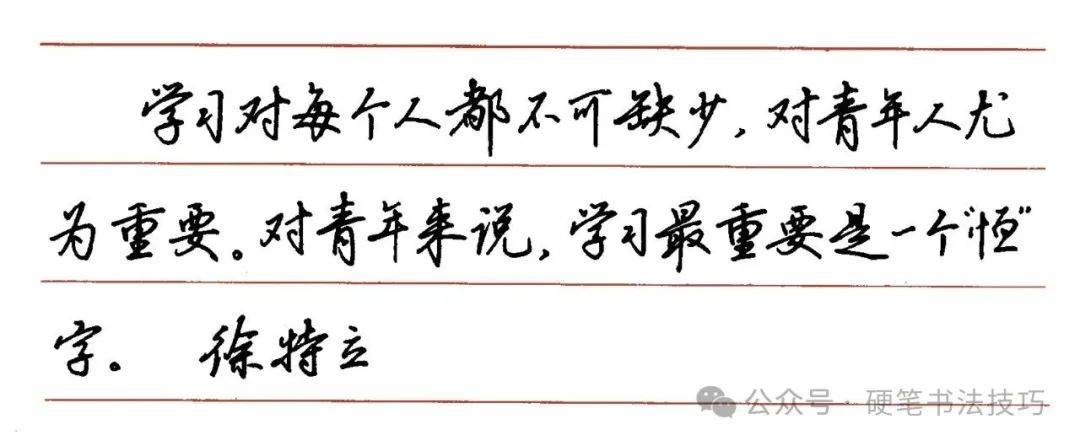 学习对每个人都不可缺少，对青年人尤
为重要。对青年来说，学习最重要是一个“恒”
字。 徐特立
公众号·硬笔书法技巧